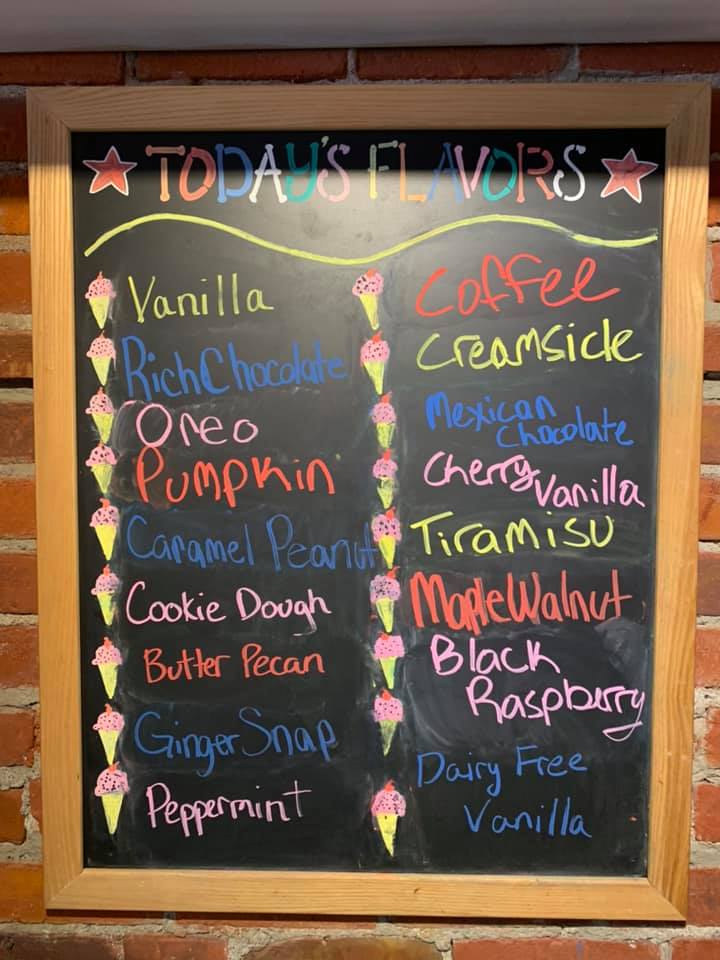 TODAY'S FLAVORS
Vanilla
Rich Chocolate
Oreo
Pumpkin
Caramel Peanut
Cookie Dough
Butter Pecan
Ginger Snap
Peppermint
Coffee
Creamsicle
Mexican
Chocolate
Cherry Vanilla
Tiramisu
Maple Walnut
Black
Raspberry
Dairy Free
Vanilla